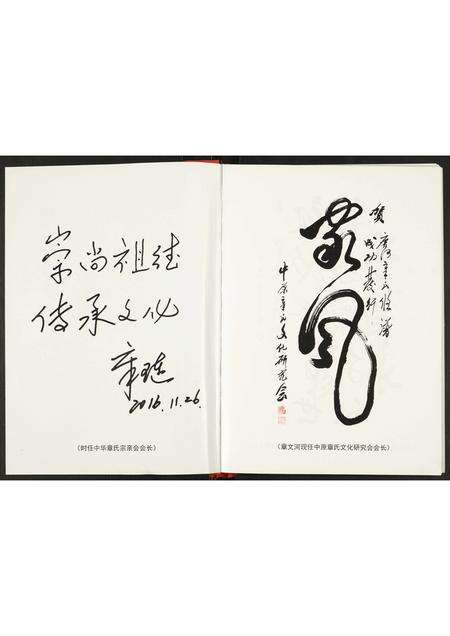 崇尚祖德
传承文化
章琎
2016.11.26.
（时任中华章氏宗亲会会长）
贺 唐河章氏族谱
成功发行
家风
中原章氏文化研究会
（章文河现任中原章氏文化研究会会长）